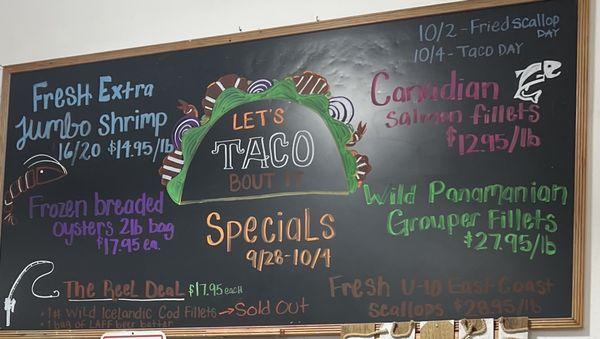 10/2 - Fried scallop
DAY
10/4 - Taco DAY
Fresh Extra
Jumbo Shrimp
16/20 $14.95/lb
LET'S
TACO
BOUT IT
Canadian
Salmon fillets
$12.95/lb
Frozen breaded
oysters 2lb bag
$17.95 ea.
Specials
9/28-10/4
Wild Panamanian
Grouper Fillets
$27.95/lb
The Reel Deal $17.95 each
• 1# Wild Icelandic Cod Fillets → Sold Out
• 1 bag of LAFF beer batter
Fresh U-10 East Coast
scallops $29.95/lb